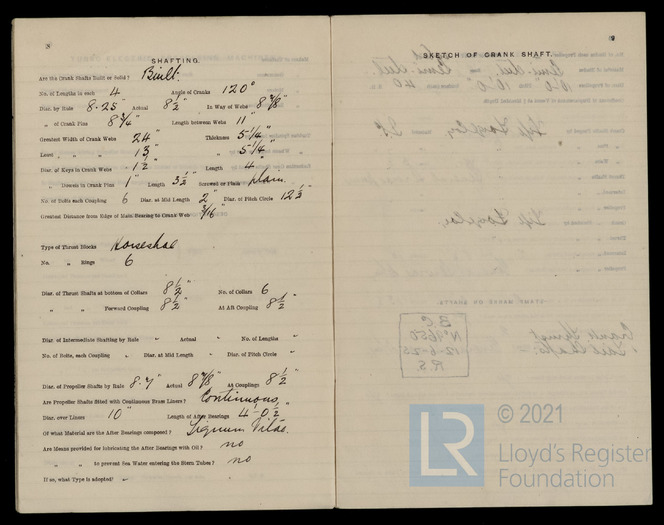 8
SHAFTING.
Are the Crank Shafts Built or Solid? Built.
No. of Lengths in each 4 Angle of Cranks 120°
Diar. by Rule 8.25 Actual 8½" In Way of Webs 8 7/8"
„ of Crank Pins 8¾" Length between Webs 11"
Greatest Width of Crank Webs 24" Thickness 5¼"
Least „ „ „ 13" „ 5¼"
Diar. of Keys in Crank Webs 1½" Length 4"
„ Dowels in Crank Pins 1" Length 3½" Screwed or Plain plain.
No. of Bolts each Coupling 6 Diar. at Mid Length 2" Diar. of Pitch Circle 12½"
Greatest Distance from Edge of Main Bearing to Crank Web 3/16"
Type of Thrust Blocks Horseshoe
No. „ Rings 6
Diar. of Thrust Shafts at bottom of Collars 8½" No. of Collars 6
„ „ Forward Coupling 8½" At Aft Coupling 8½"
Diar. of Intermediate Shafting by Rule „ Actual „ No. of Lengths „
No. of Bolts, each Coupling „ Diar. at Mid Length „ Diar. of Pitch Circle „
Diar. of Propeller Shafts by Rule 8.7" Actual 8 7/8" At Couplings 8½"
Are Propeller Shafts fitted with Continuous Brass Liners? Continuous,
Diar. over Liners 10" Length of After Bearings 4'-0½"
Of what Material are the After Bearings composed? Lignum Vitae.
Are Means provided for lubricating the After Bearings with Oil? no
„ „ to prevent Sea Water entering the Stern Tubes? no
If so, what Type is adopted? „
9
SKETCH OF CRANK SHAFT.
© 2021
LR
Lloyd's Register
Foundation